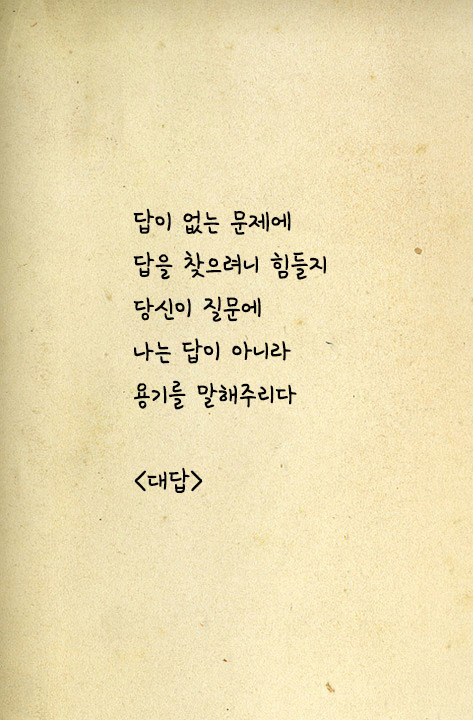 답이 없는 문제에
답을 찾으려니 힘들지
당신이 질문에
나는 답이 아니라
용기를 말해주리다
<대답>